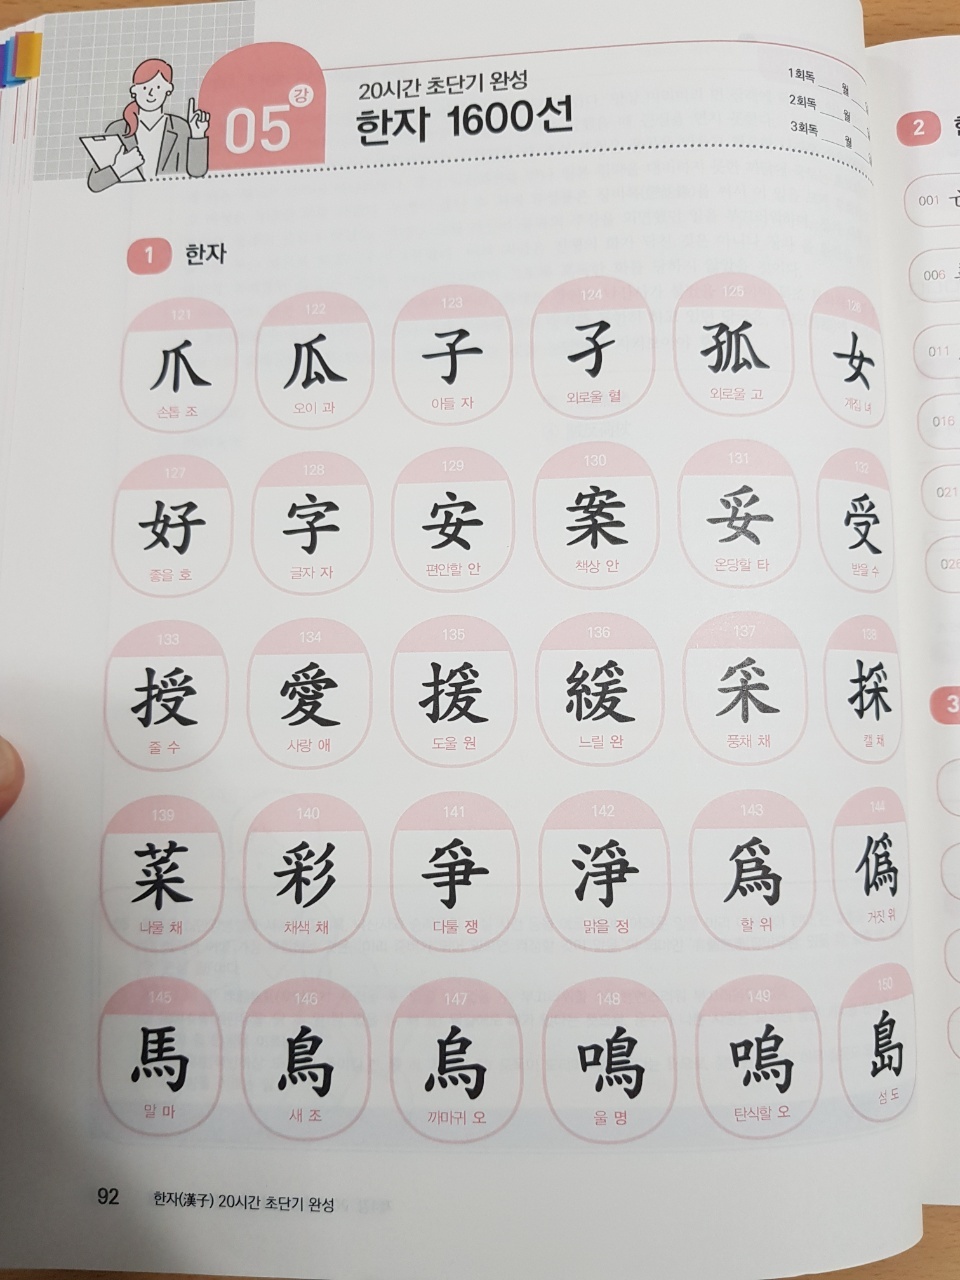 05강
20시간 초단기 완성
한자 1600선
1회독 ____월
2회독 ____월
3회독 ____월
1 한자
121 122 123 124 125 126
爪 瓜 子 孑 孤 女
손톱 조 오이 과 아들 자 외로울 혈 외로울 고 계집 녀
127 128 129 130 131 132
好 字 安 案 妥 受
좋을 호 글자 자 편안할 안 책상 안 온당할 타 받을 수
133 134 135 136 137 138
授 愛 援 緩 采 採
줄 수 사랑 애 도울 원 느릴 완 풍채 채 캘 채
139 140 141 142 143 144
菜 彩 爭 淨 爲 僞
나물 채 채색 채 다툴 쟁 맑을 정 할 위 거짓 위
145 146 147 148 149 150
馬 鳥 烏 鳴 嗚 島
말 마 새 조 까마귀 오 울 명 탄식할 오 섬 도
92 한자(漢子) 20시간 초단기 완성
2
001
006
011
016
021
026
3